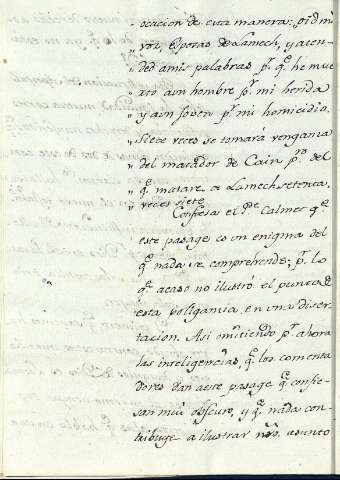 ocacion de esta manera: oid mi
" voz, Esposas de Lamech, y aten-
" ded a mis palabras pr. qe. he mue
" rto a un hombre pr. mi herida
" y a un Joven pr. mi homicidio.
" Siete veces se tomará venganza
" del matador de Cain pro. del
" qe. matare a Lamech setenta
" veces siete.
Confiesa el Pe. Calmet qe.
este pasage es un enigma del
qe. nada se comprehende; pr. lo
qe. acaso no ilustró el punto de
esta poligamia, en una diser-
tacion. Asi omitiendo pr. ahora
las inteligencias, qe. los comenta
dores dan a este pasage qe. confie-
san mui obscuro, y qe. nada con-
tribuye a ilustrar nro. asunto